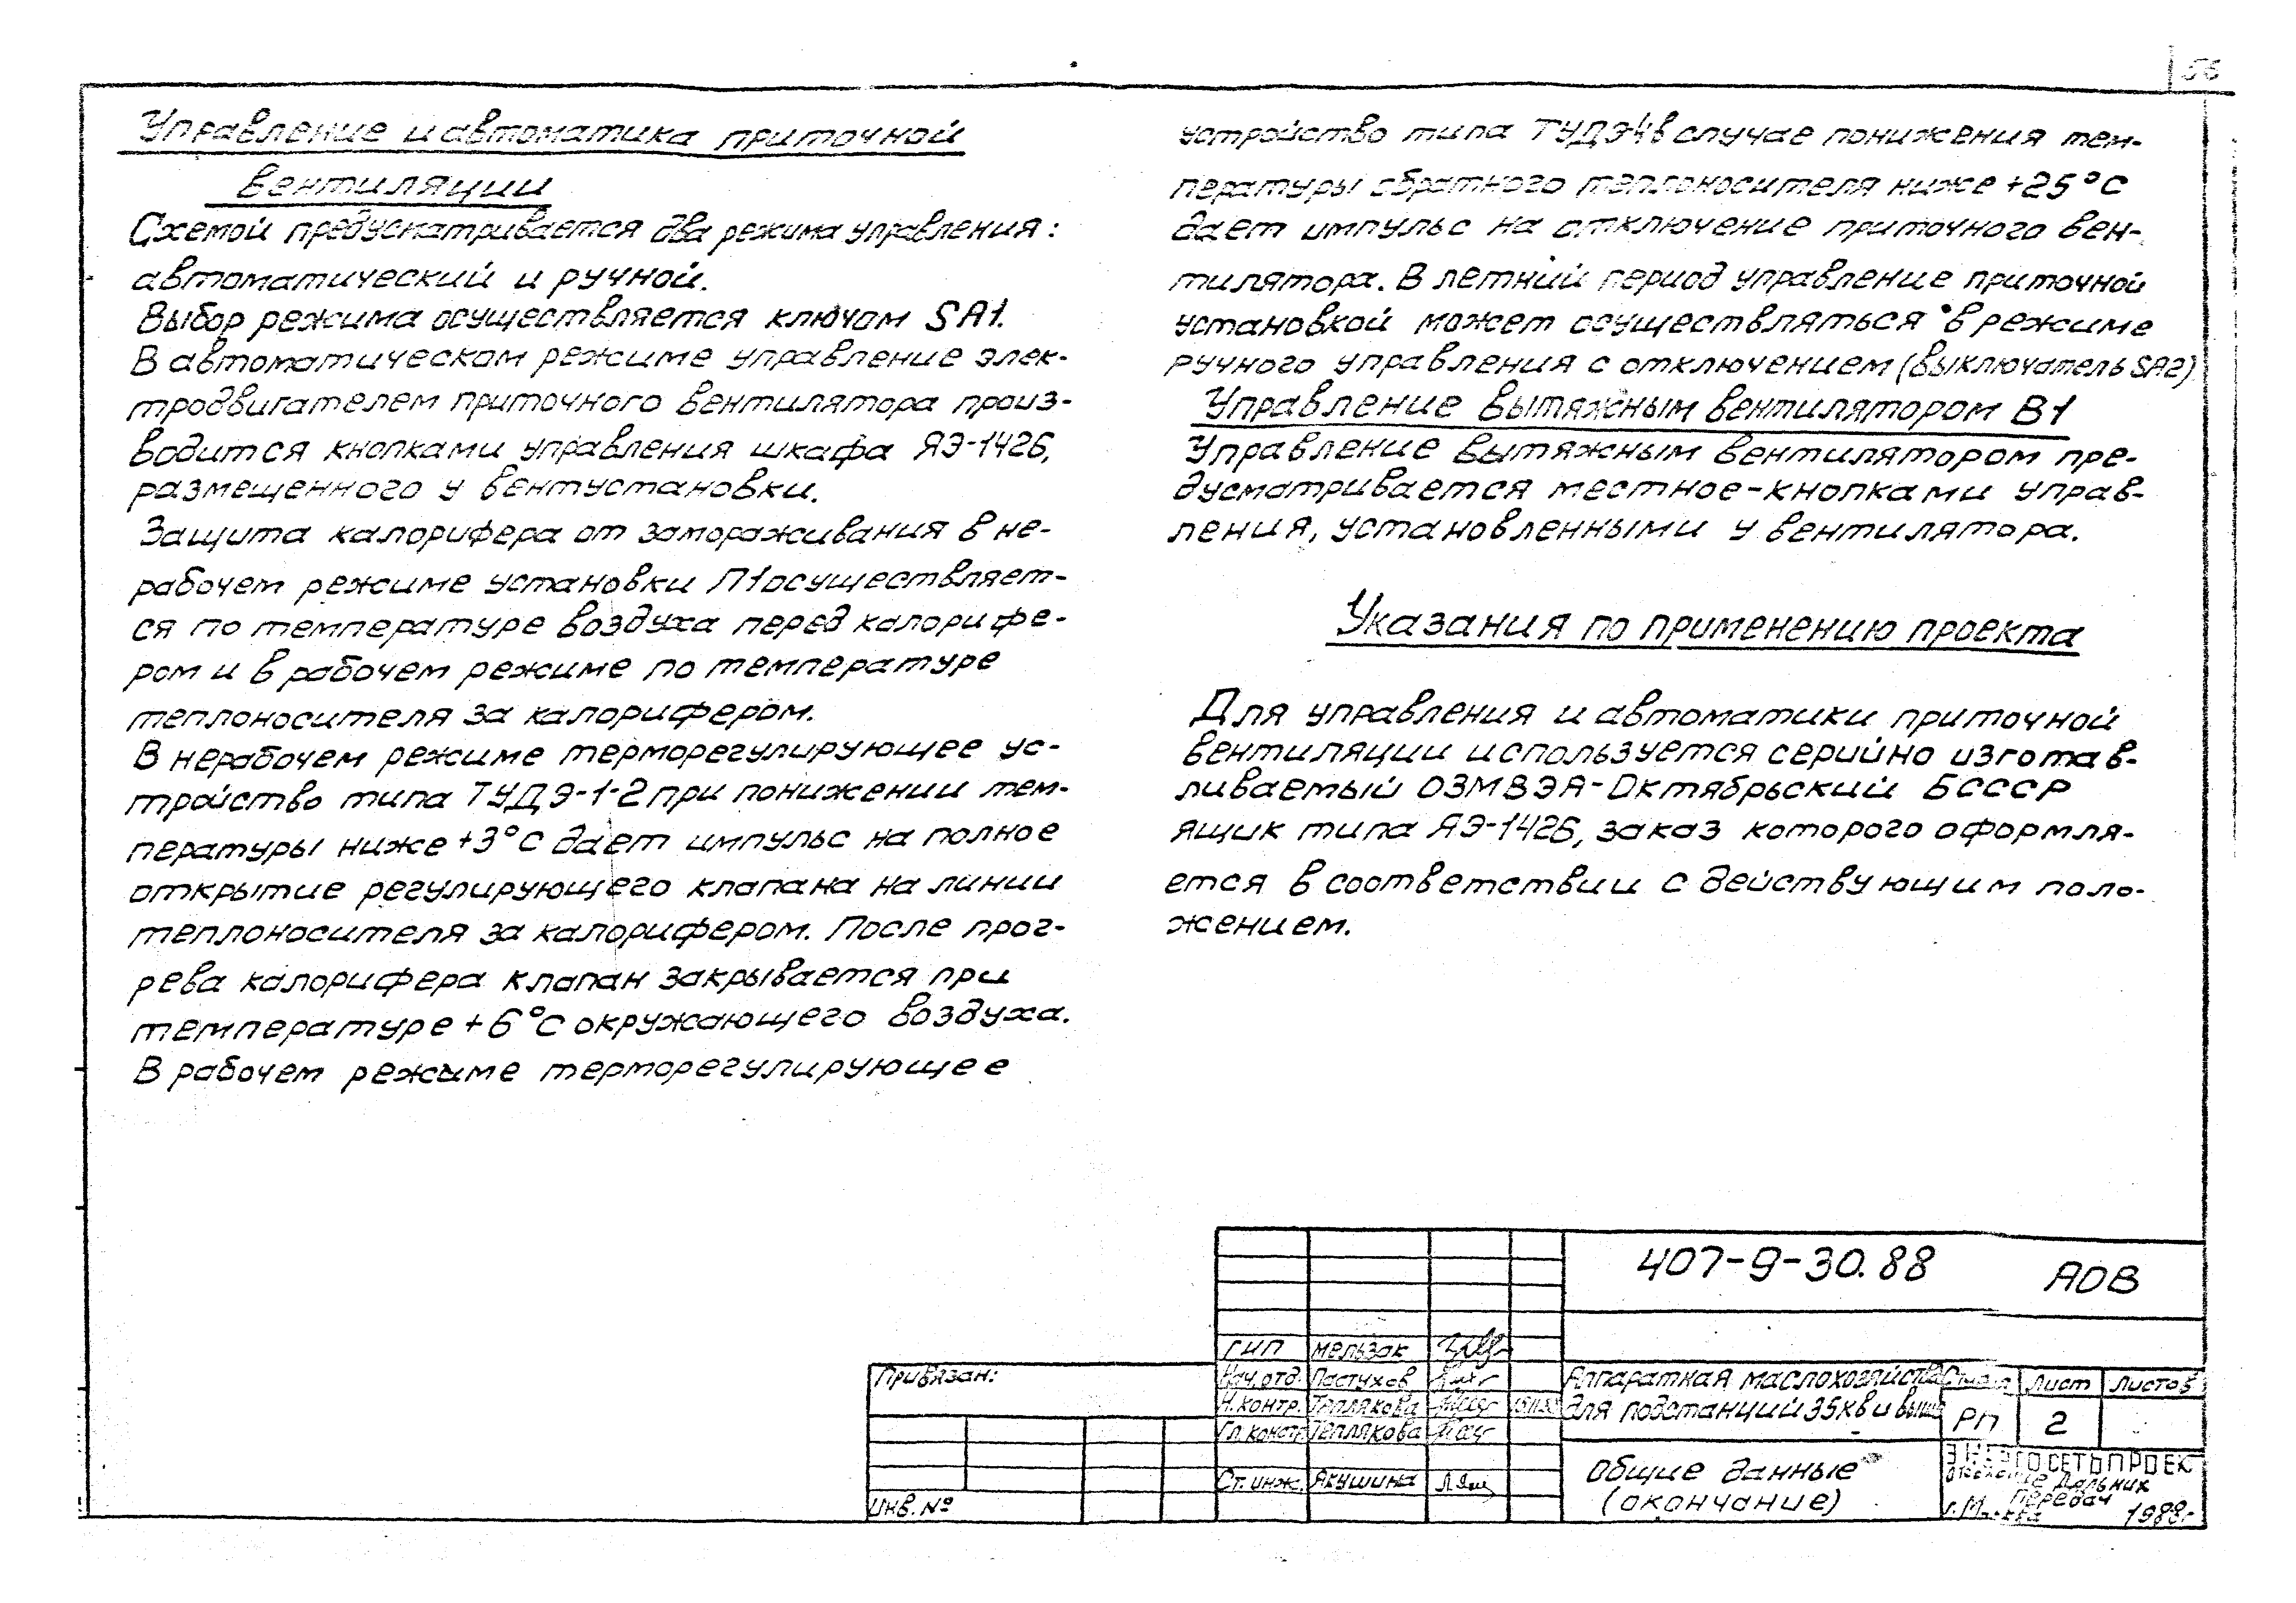 Управление и автоматика приточной
вентиляции
Схемой предусматривается два режима управления:
автоматический и ручной.
Выбор режима осуществляется ключом SA1.
В автоматическом режиме управление элек-
тродвигателем приточного вентилятора произ-
водится кнопками управления шкафа ЯЭ-1426,
размещенного у вентустановки.
Защита калорифера от замораживания в не-
рабочем режиме установки П1 осуществляет-
ся по температуре воздуха перед калорифе-
ром и в рабочем режиме по температуре
теплоносителя за калорифером.
В нерабочем режиме терморегулирующее ус-
тройство типа ТУДЭ-1-2 при понижении тем-
пературы ниже +3°С дает импульс на полное
открытие регулирующего клапана на линии
теплоносителя за калорифером. После прог-
рева калорифера клапан закрывается при
температуре +6°С окружающего воздуха.
В рабочем режиме терморегулирующее
устройство типа ТУДЭ-4 в случае понижения тем-
пературы обратного теплоносителя ниже +25°С
дает импульс на отключение приточного вен-
тилятора. В летний период управление приточной
установкой может осуществляться в режиме
ручного управления с отключением (выключатель SA2)
Управление вытяжным вентилятором В1
Управление вытяжным вентилятором пре-
дусматривается местное-кнопками управ-
ления, установленными у вентилятора.
Указания по применению проекта
Для управления и автоматики приточной
вентиляции используется серийно изготав-
ливаемый ОЗМВЭА-Октябрьский БСССР
ящик типа ЯЭ-1426, заказ которого оформля-
ется в соответствии с действующим поло-
жением.
407-9-30.88 АОВ
Привязан:
Инв. №
ГИП Мельзак
Нач. отд. Пастухов
Н. контр. Теплякова
Гл. констр. Теплякова
Ст. инж. Якушина
Аппаратная маслохозяйства
для подстанций 35кВ и выше
Стадия Лист Листов
РП 2
Общие данные
(окончание)
ЭНЕРГОСЕТЬПРОЕКТ
Отделение Дальних
Передач
г. Москва 1988г